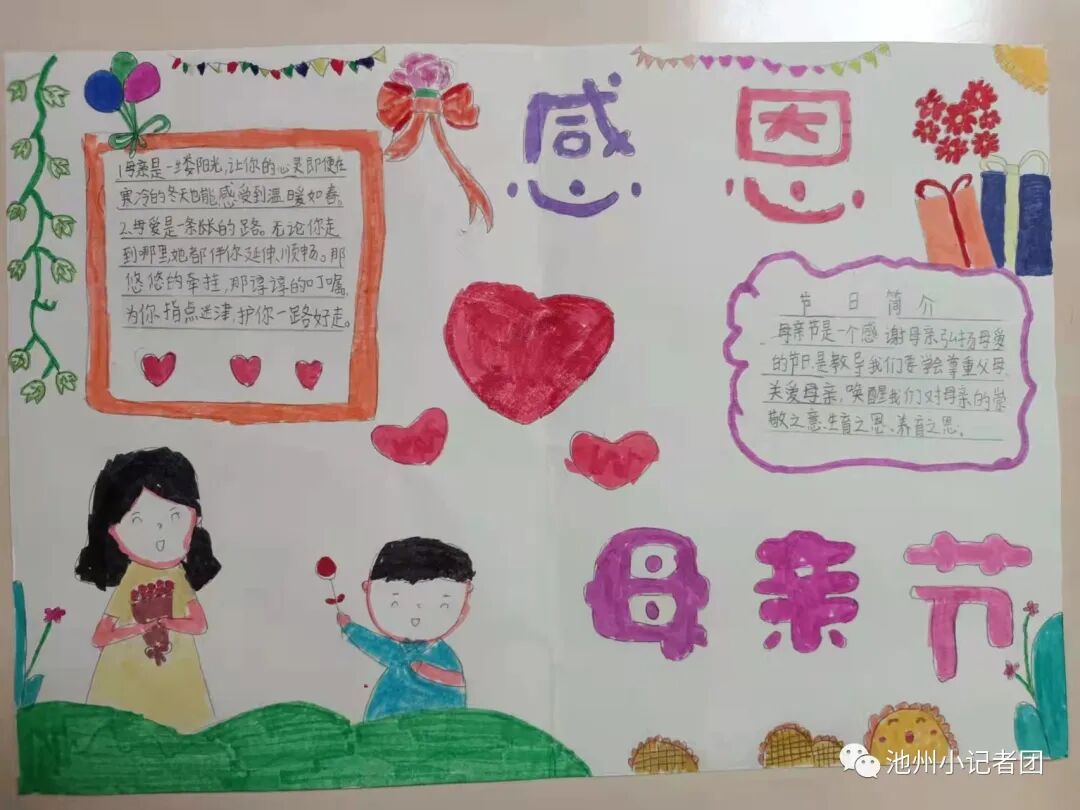 感恩
1.母亲是一缕阳光,让你的心灵即便在
寒冷的冬天也能感受到温暖如春。
2.母爱是一条长长的路。无论你走
到哪里她都伴你延伸、顺畅。那
悠悠的牵挂,那谆谆的叮嘱,
为你指点迷津,护你一路好走。
节日简介
母亲节是一个感谢母亲弘扬母爱
的节日是教导我们要学会尊重父母、
关爱母亲,唤醒我们对母亲的崇
敬之意生育之恩、养育之恩。
母亲节
池州小记者团